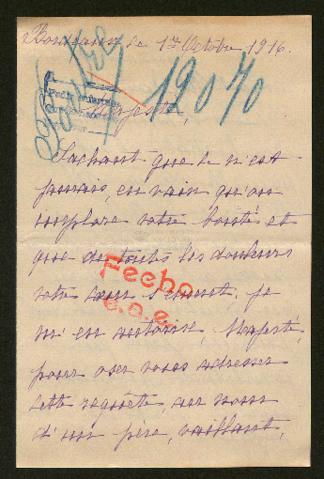 le 1er Octobre 1916.
12070
Majesté,
Sachant que ce n'est
jamais, en vain qu'on
implore votre bonté et
que de toutes les douleurs
votre cœur s'émeut, je
m'en autorise, Majesté,
pour oser vous adresser
cette requête, au nom
d'un père, vaillant,
Fecho